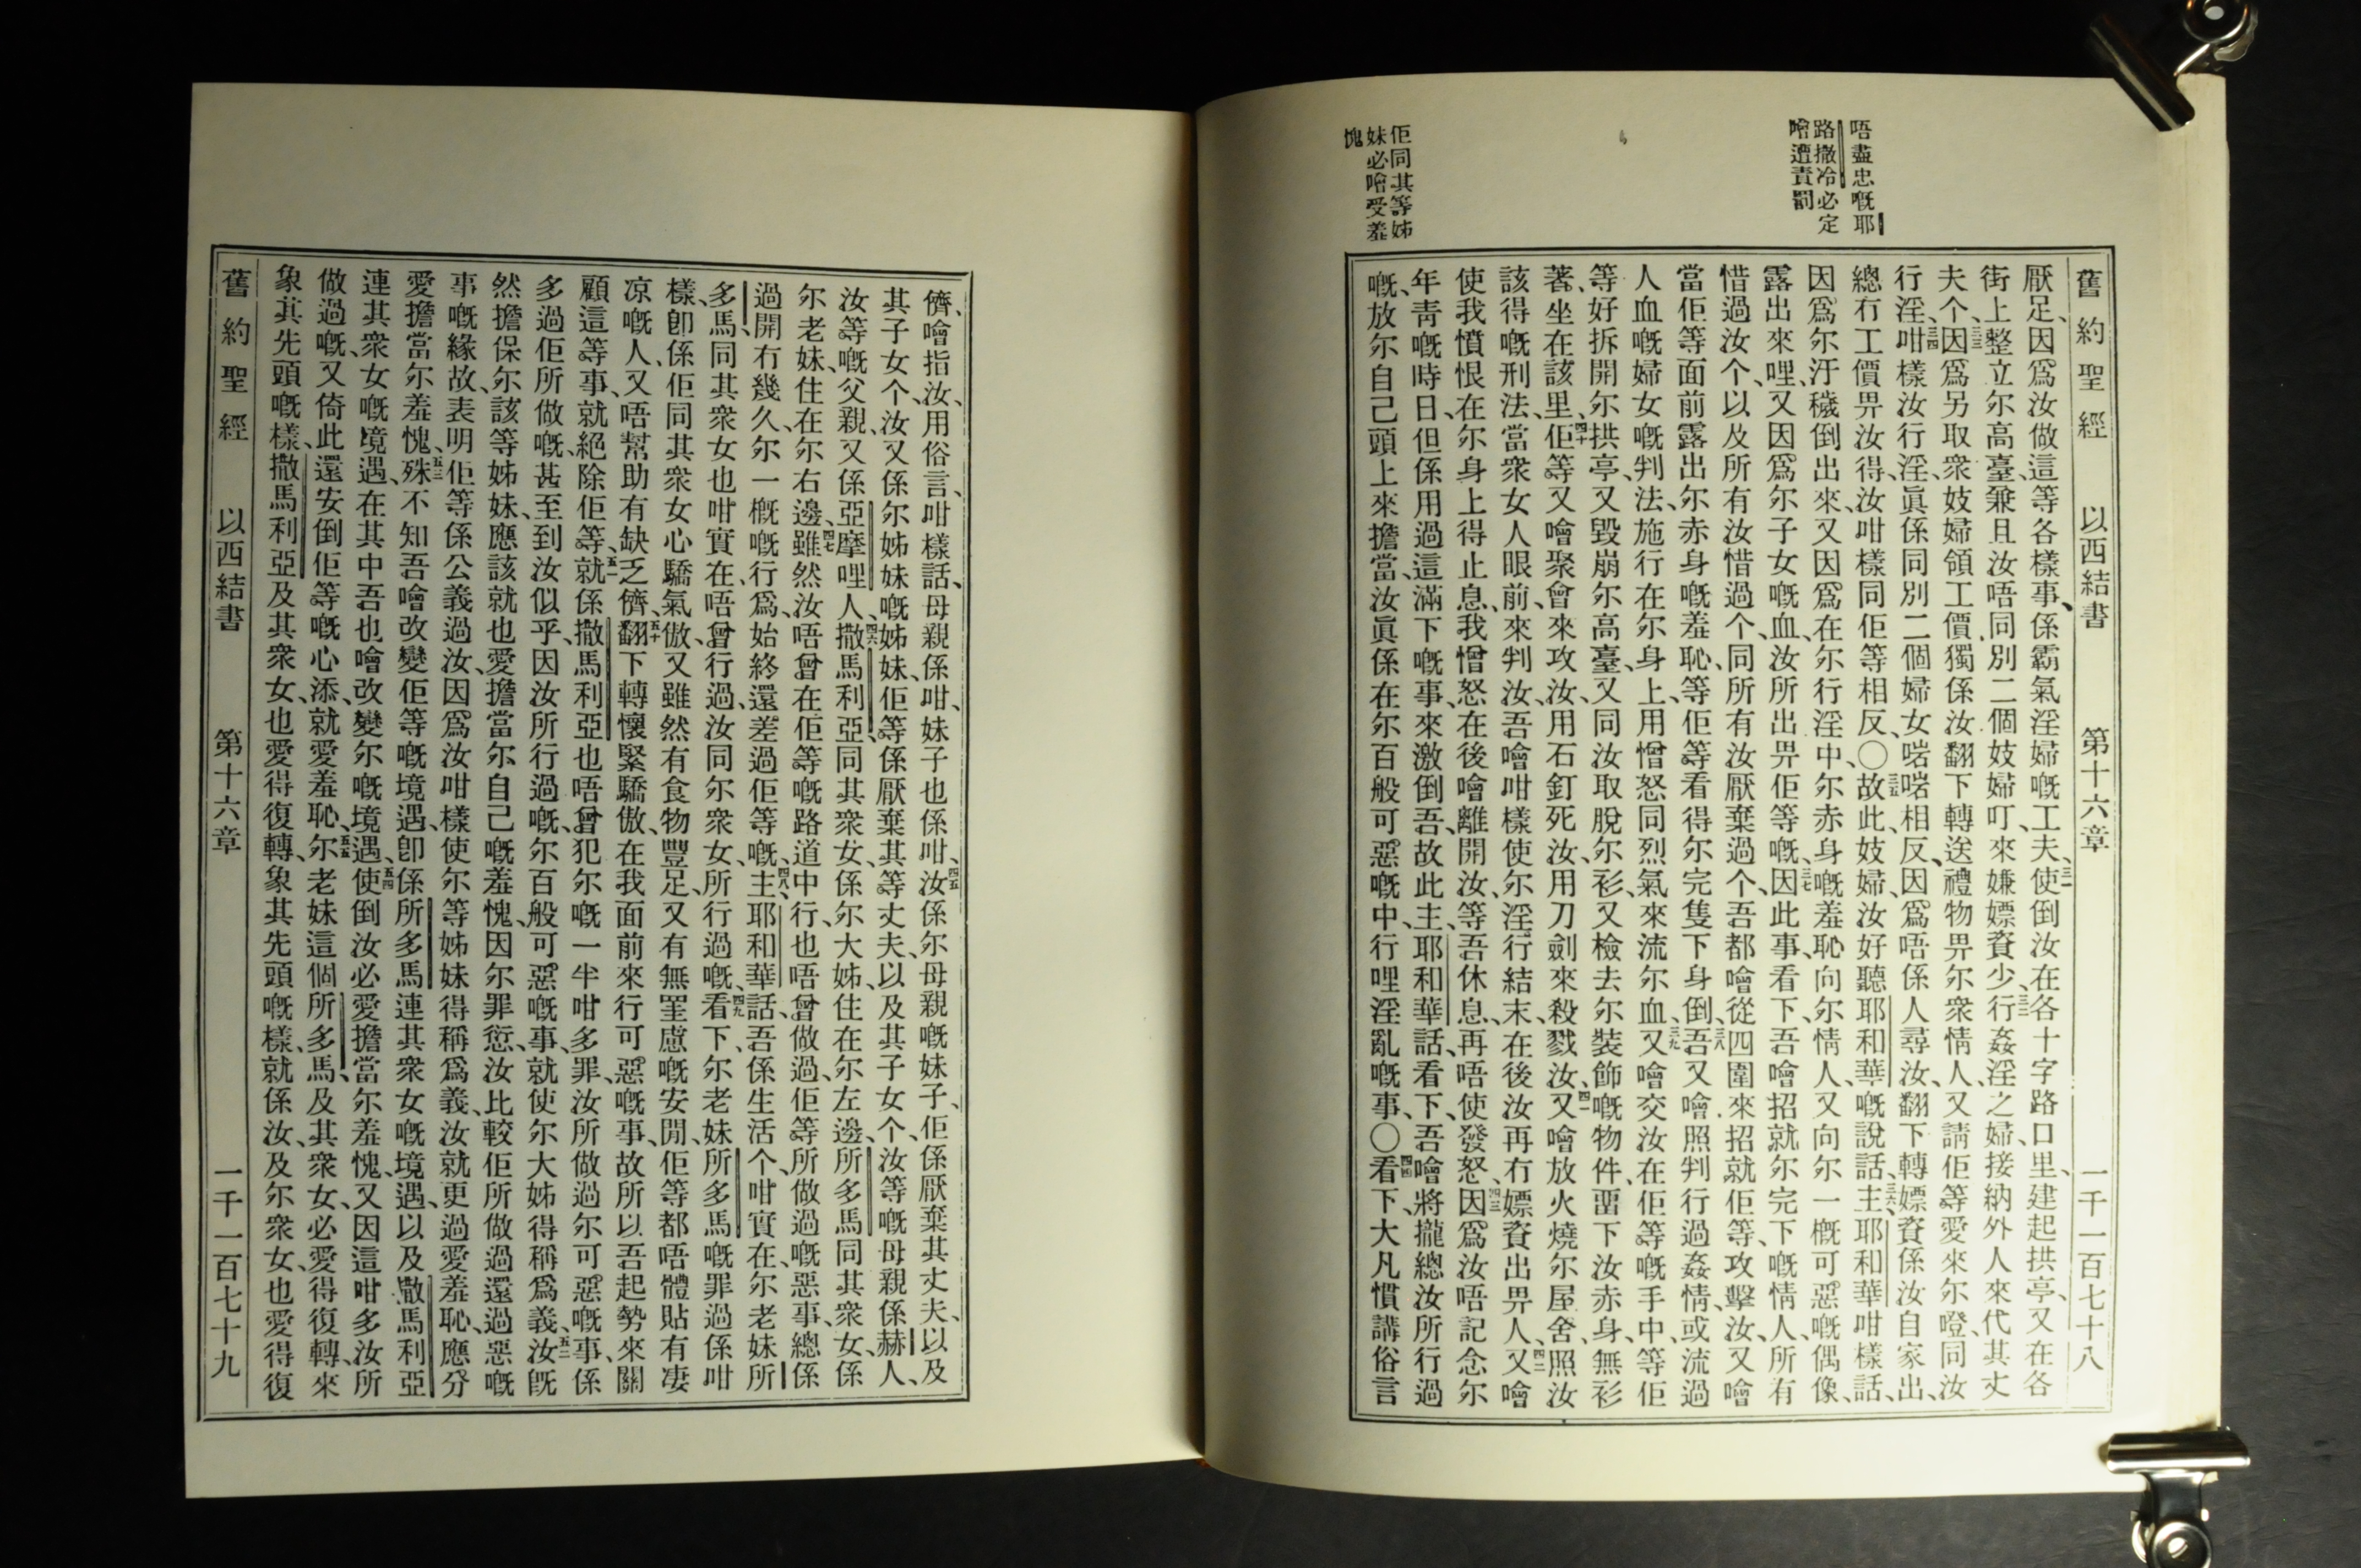 唔盡忠嘅耶
路撒冷必定
噲遭責罰
佢同其等姊
妹必噲受羞
愧
舊約聖經 以西結書 第十六章 一千一百七十八
厭足、因爲汝做這等各樣事、係霸氣淫婦嘅工夫、三一使倒汝在各十字路口里、建起拱亭、又在各
街上整立尔高臺、兼且汝唔同別二個妓婦叮來嫌嫖資少、三二行姦淫之婦、接納外人來代其丈
夫个、三三因爲另取衆妓婦領工價、獨係汝翻下轉送禮物畀尔衆情人、又請佢等愛來尔嶝同汝
行淫、三四咁樣汝行淫、眞係同別二個婦女啱啱相反、因爲唔係人尋汝、翻下轉嫖資係汝自家出、
總冇工價畀汝得、汝咁樣同佢等相反、〇三五故此妓婦、汝好聽耶和華嘅說話、三六主耶和華咁樣話、
因爲尔汙穢倒出來、又因爲在尔行淫中、尔赤身嘅羞恥向尔情人、又向尔一概可惡嘅偶像、
露出來哩、又因爲尔子女嘅血、汝所出畀佢等嘅、三七因此事看下、吾噲招就尔完下嘅情人、所有
惜過汝个、以及所有汝惜過个、同所有汝厭棄過个、吾都噲從四圍來招就佢等、攻擊汝、又噲
當佢等面前露出尔赤身嘅羞恥、等佢等看得尔完隻下身倒、三八吾又噲照判行過姦情、或流過
人血嘅婦女嘅判法、施行在尔身上、用憎怒同烈氣來流尔血、三九又噲交汝在佢等嘅手中、等佢
等好拆開尔拱亭、又毀崩尔高臺、又同汝取脫尔衫、又檢去尔裝飾嘅物件、畱下汝赤身、無衫
著、坐在該里、四十佢等又噲聚會來攻汝、用石釘死汝、用刀劍來殺戮汝、四一又噲放火燒尔屋舍、照汝
該得嘅刑法、當衆女人眼前、來判汝、吾噲咁樣使尔淫行結末、在後汝再冇嫖資出畀人、四二又噲
使我憤恨在尔身上得止息、我憎怒在後噲離開汝、等吾休息、再唔使發怒、四三因爲汝唔記念尔
年靑嘅時日、但係用過這滿下嘅事、來激倒吾、故此主、耶和華話、看下、吾噲將攏總汝所行過
嘅、放尔自己頭上來擔當、汝眞係在尔百般可惡嘅中、行哩淫亂嘅事、〇四四看下、大凡慣講俗言
儕、噲指汝、用俗言、咁樣話、母親係咁、妹子也係咁、四五汝係尔母親嘅妹子、佢係厭棄其丈夫、以及
其子女个、汝又係尔姊妹嘅姊妹、佢等係厭棄其等丈夫、以及其子女个、汝等嘅母親係赫人、
汝等嘅父親、又係亞摩哩人、四六撒馬利亞、同其衆女、係尔大姊、住在尔左邊、所多馬同其衆女、係
尔老妹、住在尔右邊、四七雖然汝唔曾在佢等嘅路道中行、也唔曾做過佢等所做過嘅惡事、總係
過開冇幾久、尔一概嘅行爲、始終還差過佢等嘅、四八主耶和華話、吾係生活个、咁實在、尔老妹所
多馬、同其衆女也咁實在、唔曾行過、汝同尔衆女、所行過嘅、四九看下、尔老妹所多馬嘅罪過係咁
樣、卽係佢同其衆女心驕氣傲、又雖然有食物豐足、又有無罣慮嘅安閒、佢等都唔體貼有凄
凉嘅人、又唔幫助有缺乏儕、五十翻下轉懷緊驕傲、在我面前來行可惡嘅事、故所以吾起勢來關
顧這等事、就絕除佢等、五一就係撒馬利亞也唔曾犯尔嘅一半咁多罪、汝所做過尔可惡嘅事、係
多過佢所做嘅、甚至到汝似乎、因汝所行過嘅、尔百般可惡嘅事、就使尔大姊得稱爲義、五二汝旣
然擔保尔該等姊妹、應該就也愛擔當尔自己嘅羞愧、因尔罪愆、汝比較佢所做過還過惡嘅
事嘅緣故、表明佢等係公義過汝、因爲汝咁樣使尔等姊妹得稱爲義、汝就更過愛羞恥、應分
愛擔當尔羞愧、五三殊不知吾噲改變佢等嘅境遇、卽係所多馬連其衆女嘅境遇、以及撒馬利亞
連其衆女嘅境遇、在其中吾也噲改變尔嘅境遇、五四使倒汝必愛擔當尔羞愧、又因這咁多汝所
做過嘅、又倚此還安倒佢等嘅心添、就愛羞恥、五五尔老妹這個所多馬、及其衆女、必愛得復轉、來
象其先頭嘅樣、撒馬利亞及其衆女、也愛得復轉、象其先頭嘅樣、就係汝、及尔衆女、也愛得復
舊約聖經 以西結書 第十六章 一千一百七十九